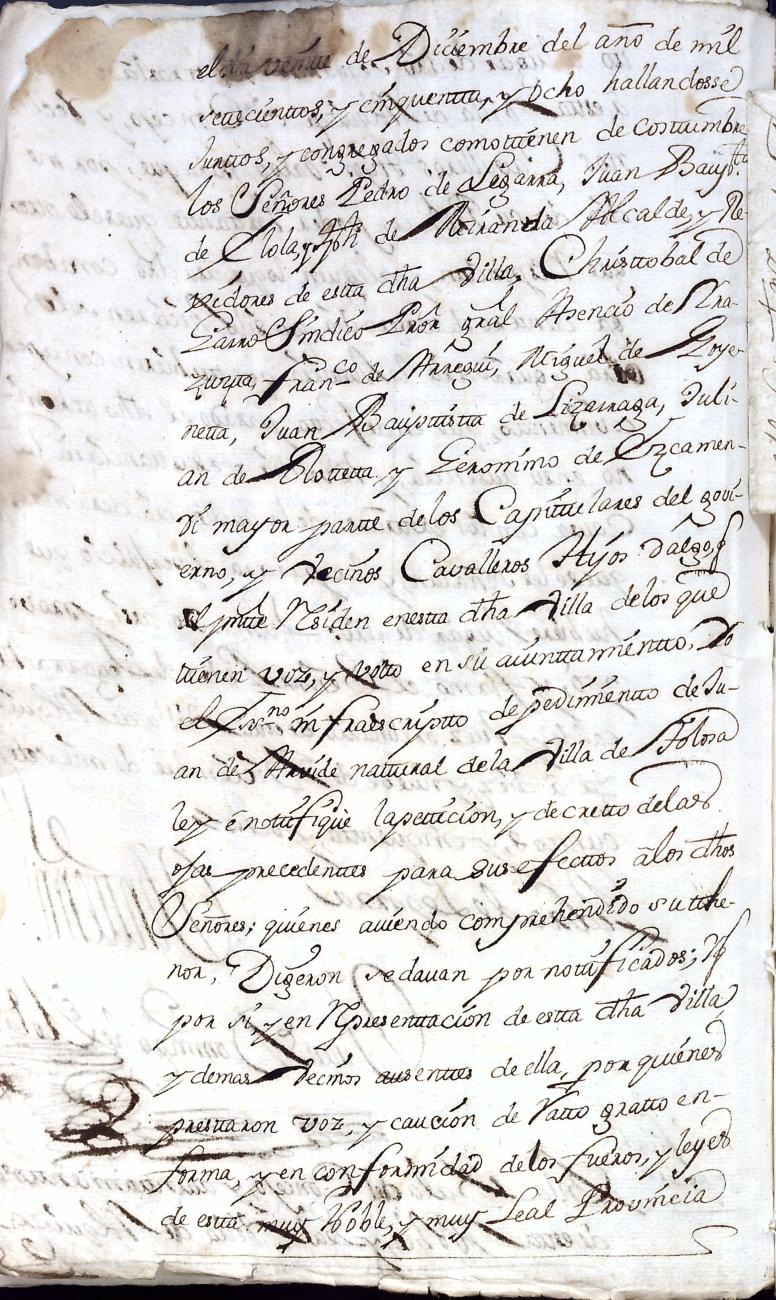 el dia veinte de Diciembre del año de mil
settecienttos, y cinquentta, y ocho hallandosse
Junttos, y congregados como ttienen de costtumbre
los Señores Pedro de Legarra, Juan Baupta
de Elola, y Jph de Miranda Alcalde, y Re-
xidores de estta dha Villa, Christtobal de
Garro Sindico Prör gräl Asencio de
Franco de Arregui, Miguel de Goye-
netta, Juan Bauptistta de Lizarraga, Juli-
an de Olottetta y Geronimo de Ezcamen-
di mayor partte de los Capittulares del govi-
erno, y Vecinos Cavalleros Hijos dalgo, q
al prtte Residen en estta dha Villa de los que
ttienen voz, y votto en su aiunttamientto, Yo
el Esno infraescriptto de pedimientto de Ju-
an de Arvide nattural de la Villa de Tolosa
ley é nottifiqüe la petticion, y decretto de las
ojas precedenttes para sus efecttos â los dhos
Señores; quienes aviendo comprehendido su tthe-
nor, Digeron se davan por nottificados; Y
por si, y en Representtacion de estta dha Villa
y demas Vecinos ausenttes de ella, por quienes
presttaron voz, y caucion de ratto gratto en-
forma, y en conformidad de los fueros, y leyes
de estta muy Noble, y muy Leal Provincia